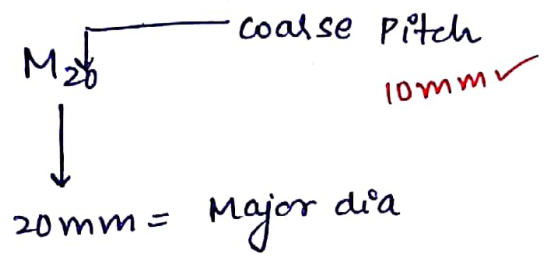 coarse Pitch
M20
10mm✓
20mm = Major dia